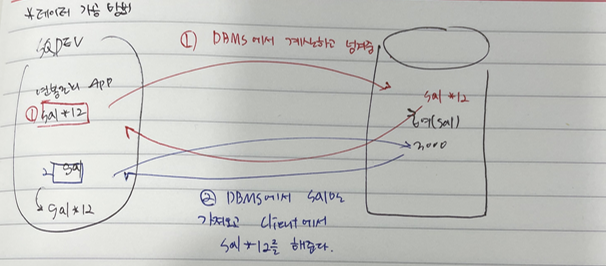 ※데이터 가공 방법
SQDEV
연봉관리 APP
① sal*12
2 sal
sal*12
① DBMS에서 계산하고 넘겨줌
sal *12
(sal)
3000
② DBMS에서 sal만
가져오고 client에서
sal *12를 해준다.